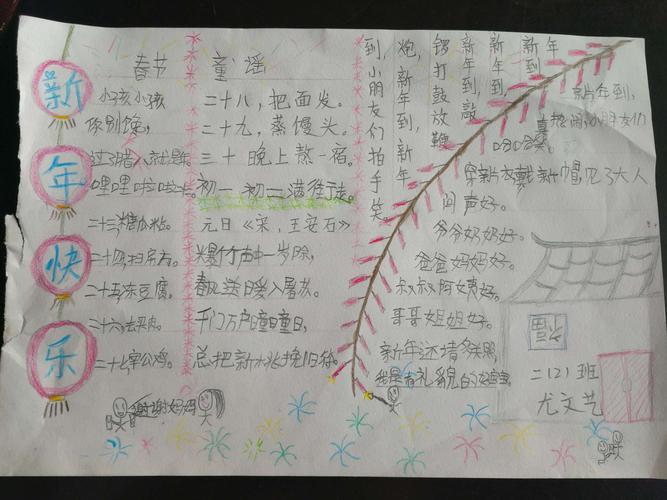 新
年
快
乐
春节 童谣
小孩小孩
你别馋,
过了腊八就是年。
哩哩啦啦
二十三糖瓜粘。
二十四扫房子。
二十五冻豆腐。
二十六去买肉。
二十七宰公鸡。
二十八,把面发。
二十九,蒸馒头。
三十晚上熬一宿。
初一、初二满街走。
元日《宋,王安石》
爆竹声中一岁除,
春风送暖入屠苏。
千门万户曈曈日,
总把新桃换旧符。
谢谢妈妈
新年到
新年到
新年到敲
锣打鼓放鞭
炮,新年到,新年
到,小朋友们拍手笑。
新年到,
真热闹小朋友们
哈哈笑。
穿新衣戴新帽见了大人
问声好。
爷爷奶奶好。
爸爸妈妈好。
叔叔阿姨好。
哥哥姐姐好。
新年还请多关照,
我是有礼貌的好宝宝
福
二(2)班
尤文艺